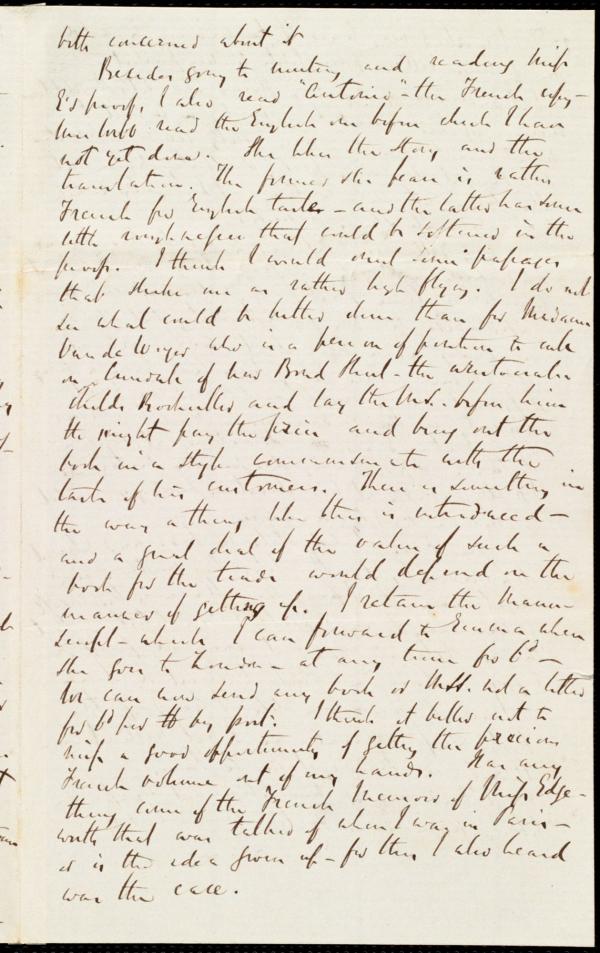 both concerned about it
Besides going to meeting and reading Miss
E's proofs, I also read "Antonio" - the French copy -
read the English one before which I have
not yet done. She likes the story and the
translation. The former she fears is rather
French for English taste - and the latter has some
little roughnesses that could be softened in the
proofs. I think I would omit some passages
that strike me as rather high flying. I do not
see what could be better done than for Madame
Van de Weyer who is a person of position to call
on of New Bond Street - the aristocratic
childs Bookseller and lay the Ms. before him
He might pay the price and bring out the
book in a style commensurate with the
taste of his customers. There is something in
the way a thing like this is introduced -
and a great deal of the value of such a
book for the trade would depend on the
manner of getting up. I retain the Manu-
script - which I can forward to Emma when
she goes to London - at any time for 6d -
We can now send any book or MSS. not a letter
for 6d per lb by post. I think it better not to
miss a good opportunity of getting the precious
French volume out of my hands. Has any
thing come of the French Memoir of Miss Edge-
worth that was talked of when I was in Paris -
or is the idea given up - for this I also heard
was the case.